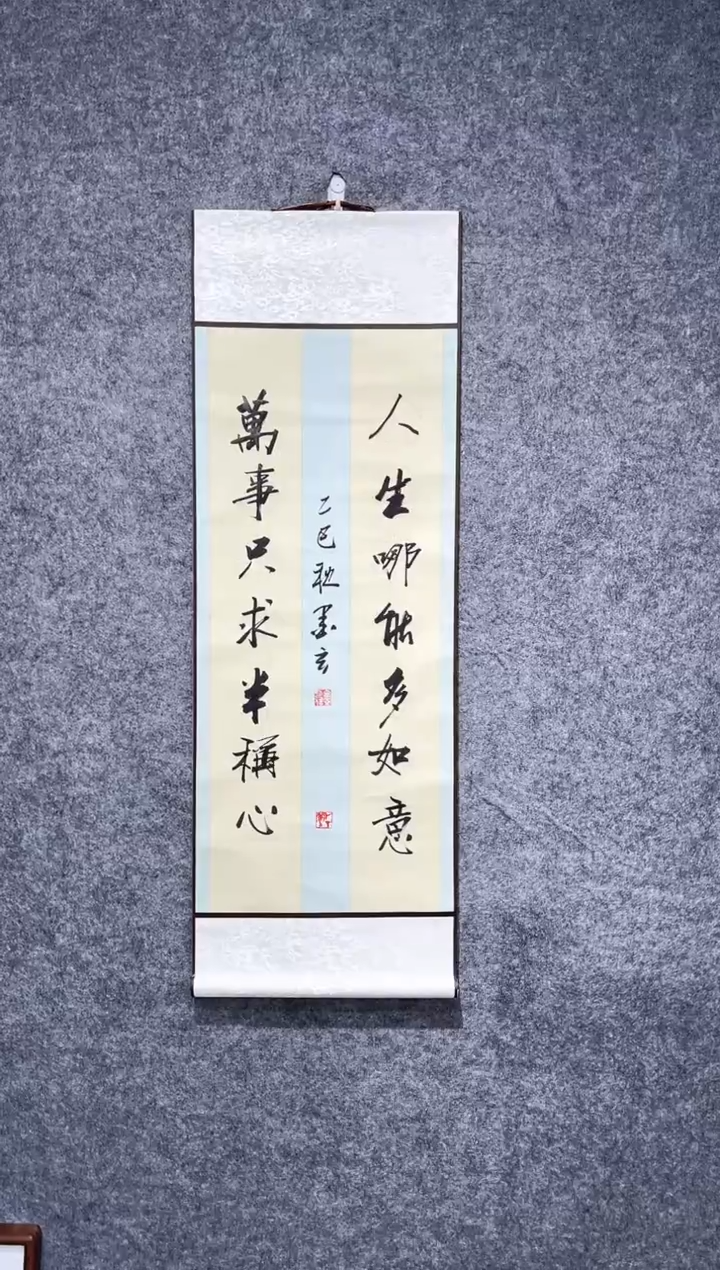 人生哪能多如意
萬事只求半稱心
乙巳秋墨玄